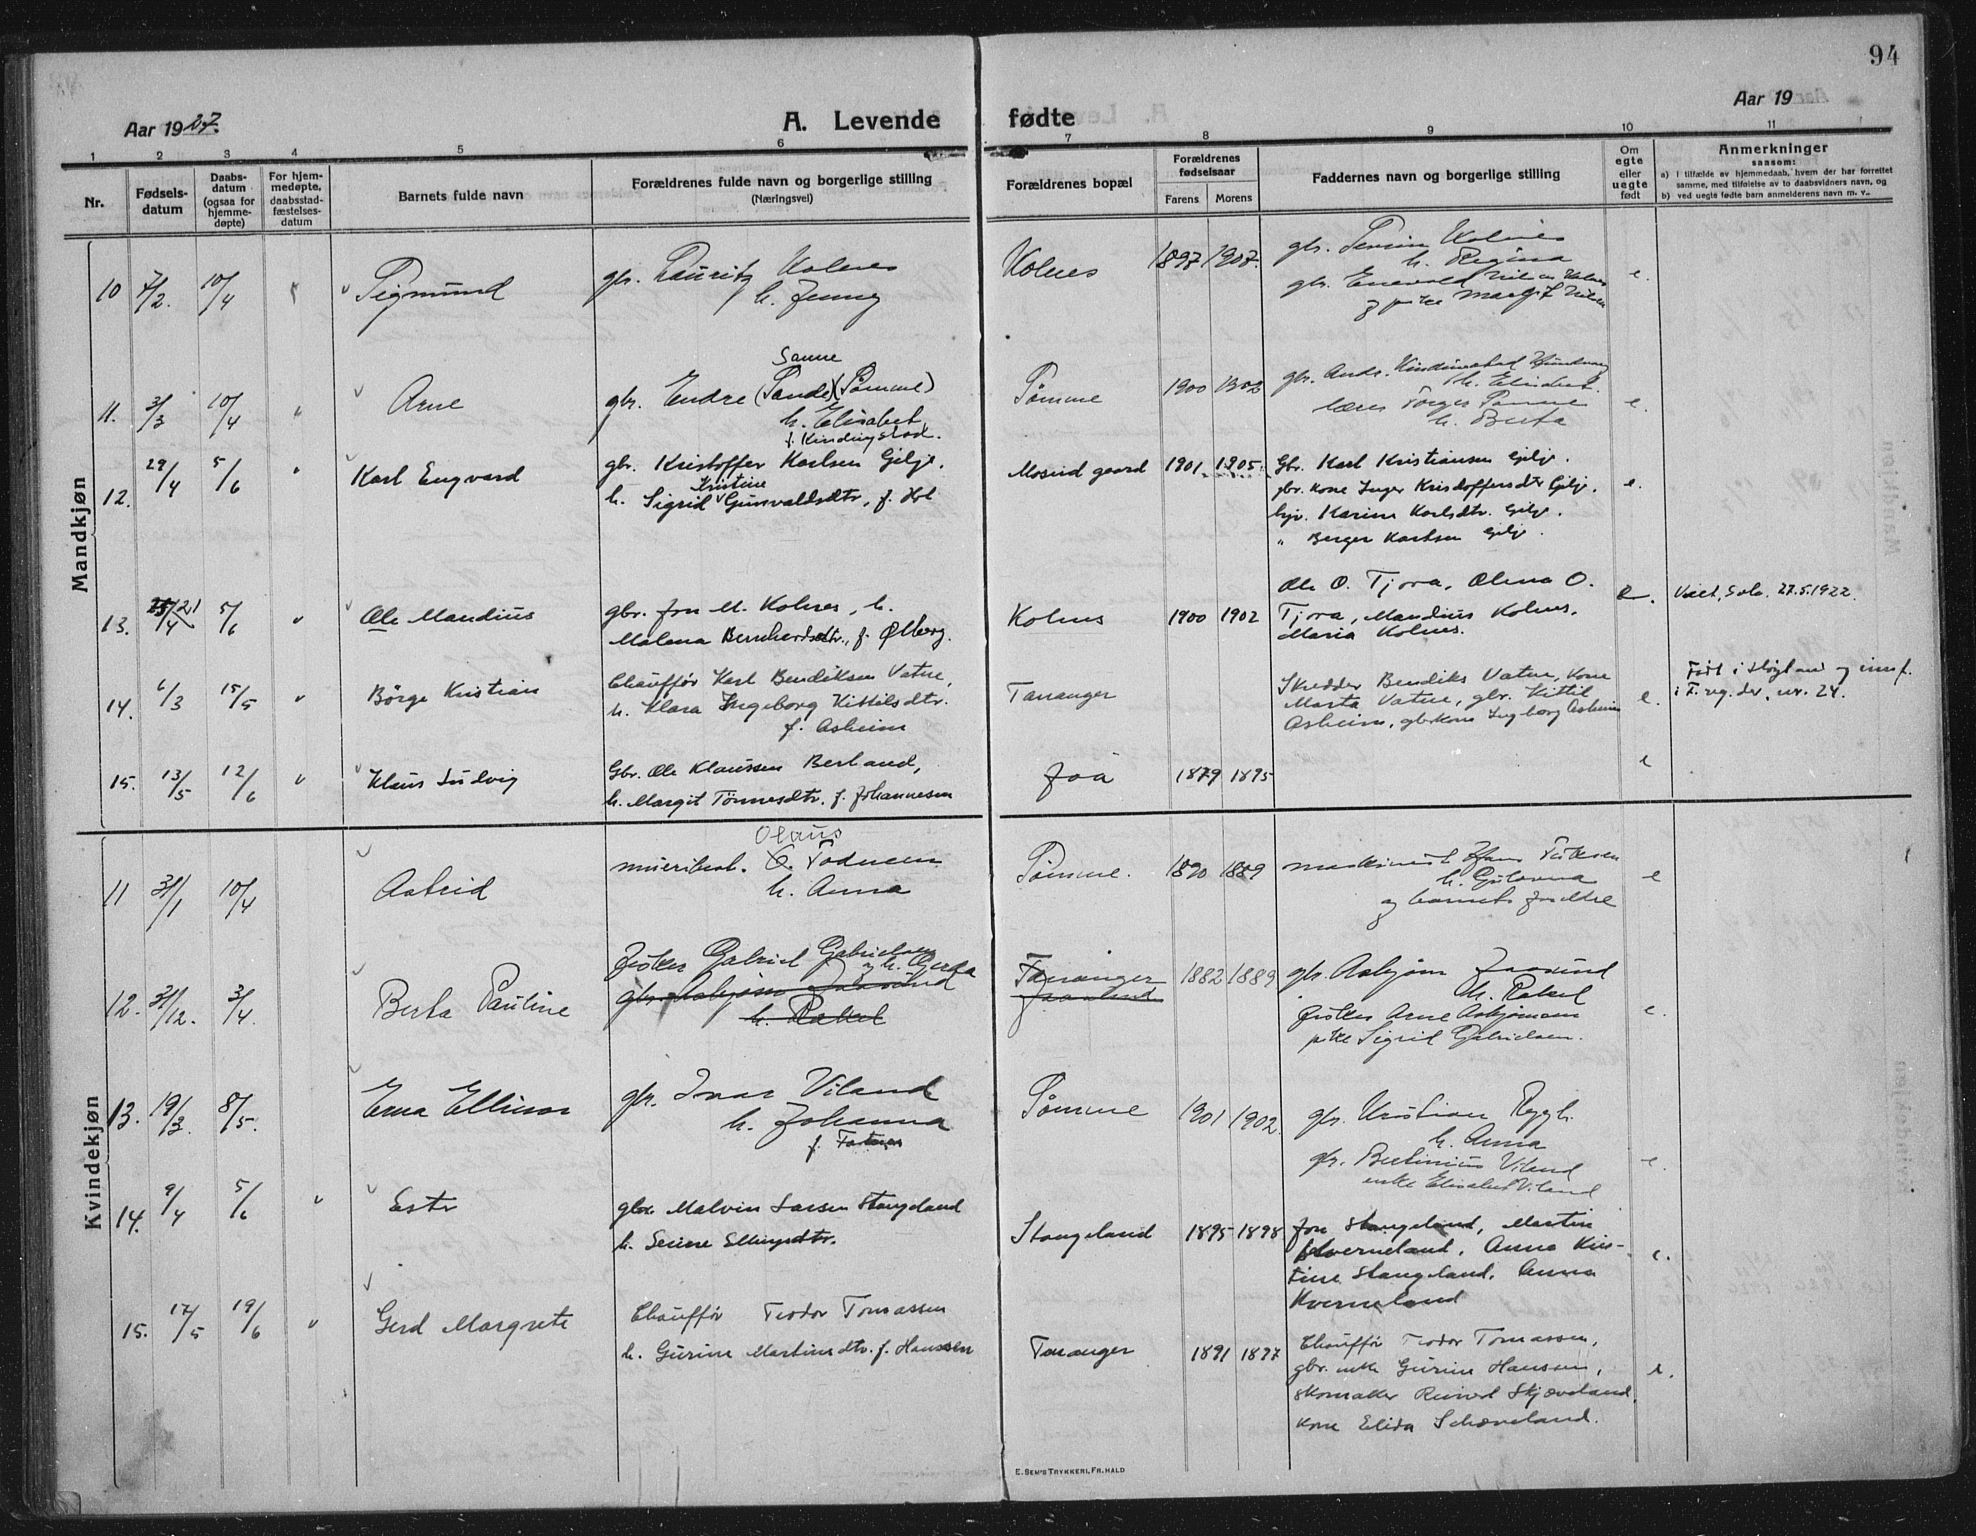 94
Aar 1927.
A. Levende fødte
Aar 19
1 2 3 4 5 6 7 8 9 10 11
Nr.
Fødsels-
datum
Daabs-
datum
(ogsaa for
hjemme-
døpte)
For hjem-
medøpte,
daabsstad-
fæstelses-
datum
Barnets fulde navn
Forældrenes fulde navn og borgerlige stilling
(Næringsvei)
Forældrenes bopæl
Forældrenes
fødselsaar
Farens Morens
Faddernes navn og borgerlige stilling
Om
egte
eller
uegte
født
Anmerkninger
saasom:
a) I tilfælde av hjemmedaab, hvem der har forrettet
samme, med tilføielse av to daabsvidners navn, og
b) ved uegte fødte barn anmelderens navn m. v..
Mandkjøn
10 7/2. 10/4 Sigmund
gbr. Lauritz Kolnes
h. Jenny
Kolnes 1897 1907.
h. Regina
e.
11. 3/3 10/4 Arne
Sømme
gbr. Endre (Sande)(Sømme)
h. Elisabet
f. Kindingstad.
Sømme 1900 1902
h. Berta
e.
12. 29/4 5/6 Karl Engvard
gbr. Kristoffer Karlsen Gilje.
Kristine
h. Sigrid Gunvaldsdtr., f. Hol
1901. 1905.
Gbr. Karl Kristiansen Gilje.
gbr. kone Inger Kristoffersdtr Gilje.
Karine Karlsdtr. Gilje.
" Berger Karlsen Gilje.
e.
13. 5/6 Ole Mandius
gbr. Jon M. Kolnes, h.
Malena Bernhardsdtr., f. Ølberg.
Kolnes 1900 1902
Ole O. Tjora, Olena O.
Tjora, Mandius Kolnes.
Maria Kolnes.
e. 27.5.1922.
14. 6/3 15/5 Börge Kristian
Chauffør Karl Bendiksen Vatne,
h. Klara Ingeborg Kittilsdtr.
f. Asheim
Tananger
Skredder Bendiks Vatne, kone
Marta Vatne, gbr. Kittil
Asheim, gbrkone Ingborg Asheim
e.
Født i Høyland og innf.
i F. reg. der, nr. 24.
15. 13/5 12/6 Klaus Ludvig
Gbr. Ole Klaussen Berland,
h. Margit Tönnesdtr. f. Johannesen
Joa 1879 1895
e
Kvindekjøn
11 31/1 10/4 Astrid
Olaus
h. Anna
Sømme. 1890 1889
og barnets foreldre
e
12. 31/12. 3/4. Berta Pauline
fisker Gabriel Gabrielsen
og h. Berta
h. Rakel
Tananger 1882 1889
h. Rakel
fisker Arne Asbjørnsen
pike Sigrid Gabrielsen.
e.
13. 19/3. 8/5. Erna Ellinor
gbr. Ivar Viland
h. Johanna
Sømme 1901 1902.
gbr. Kristian Rygh.
h. Anna
gbr. Bertinius Viland
enke Elisabet Viland
e.
14. 9/4 5/6 Ester
gbr. Malvin Larsen Stangeland
h. Serine Ellingsdtr.
Stangeland 1895 1898
Jon Stangeland, Martin
Kverneland, Anna Kris-
tine Stangeland, Anna
Kverneland
e.
15. 17/5 19/6 Gerd Margrete
Chauffør Teodor Tomassen
h. Gurine Martinsdtr. f. Hanssen
Tananger 1891 1897
Chauffør Teodor Tomassen,
gbr. enke Gurine Hanssen,
skomaker Reinert Skjæveland,
kone Elida Schæveland.
e.
E. SEM'S TRYKKERI, FR.HALD